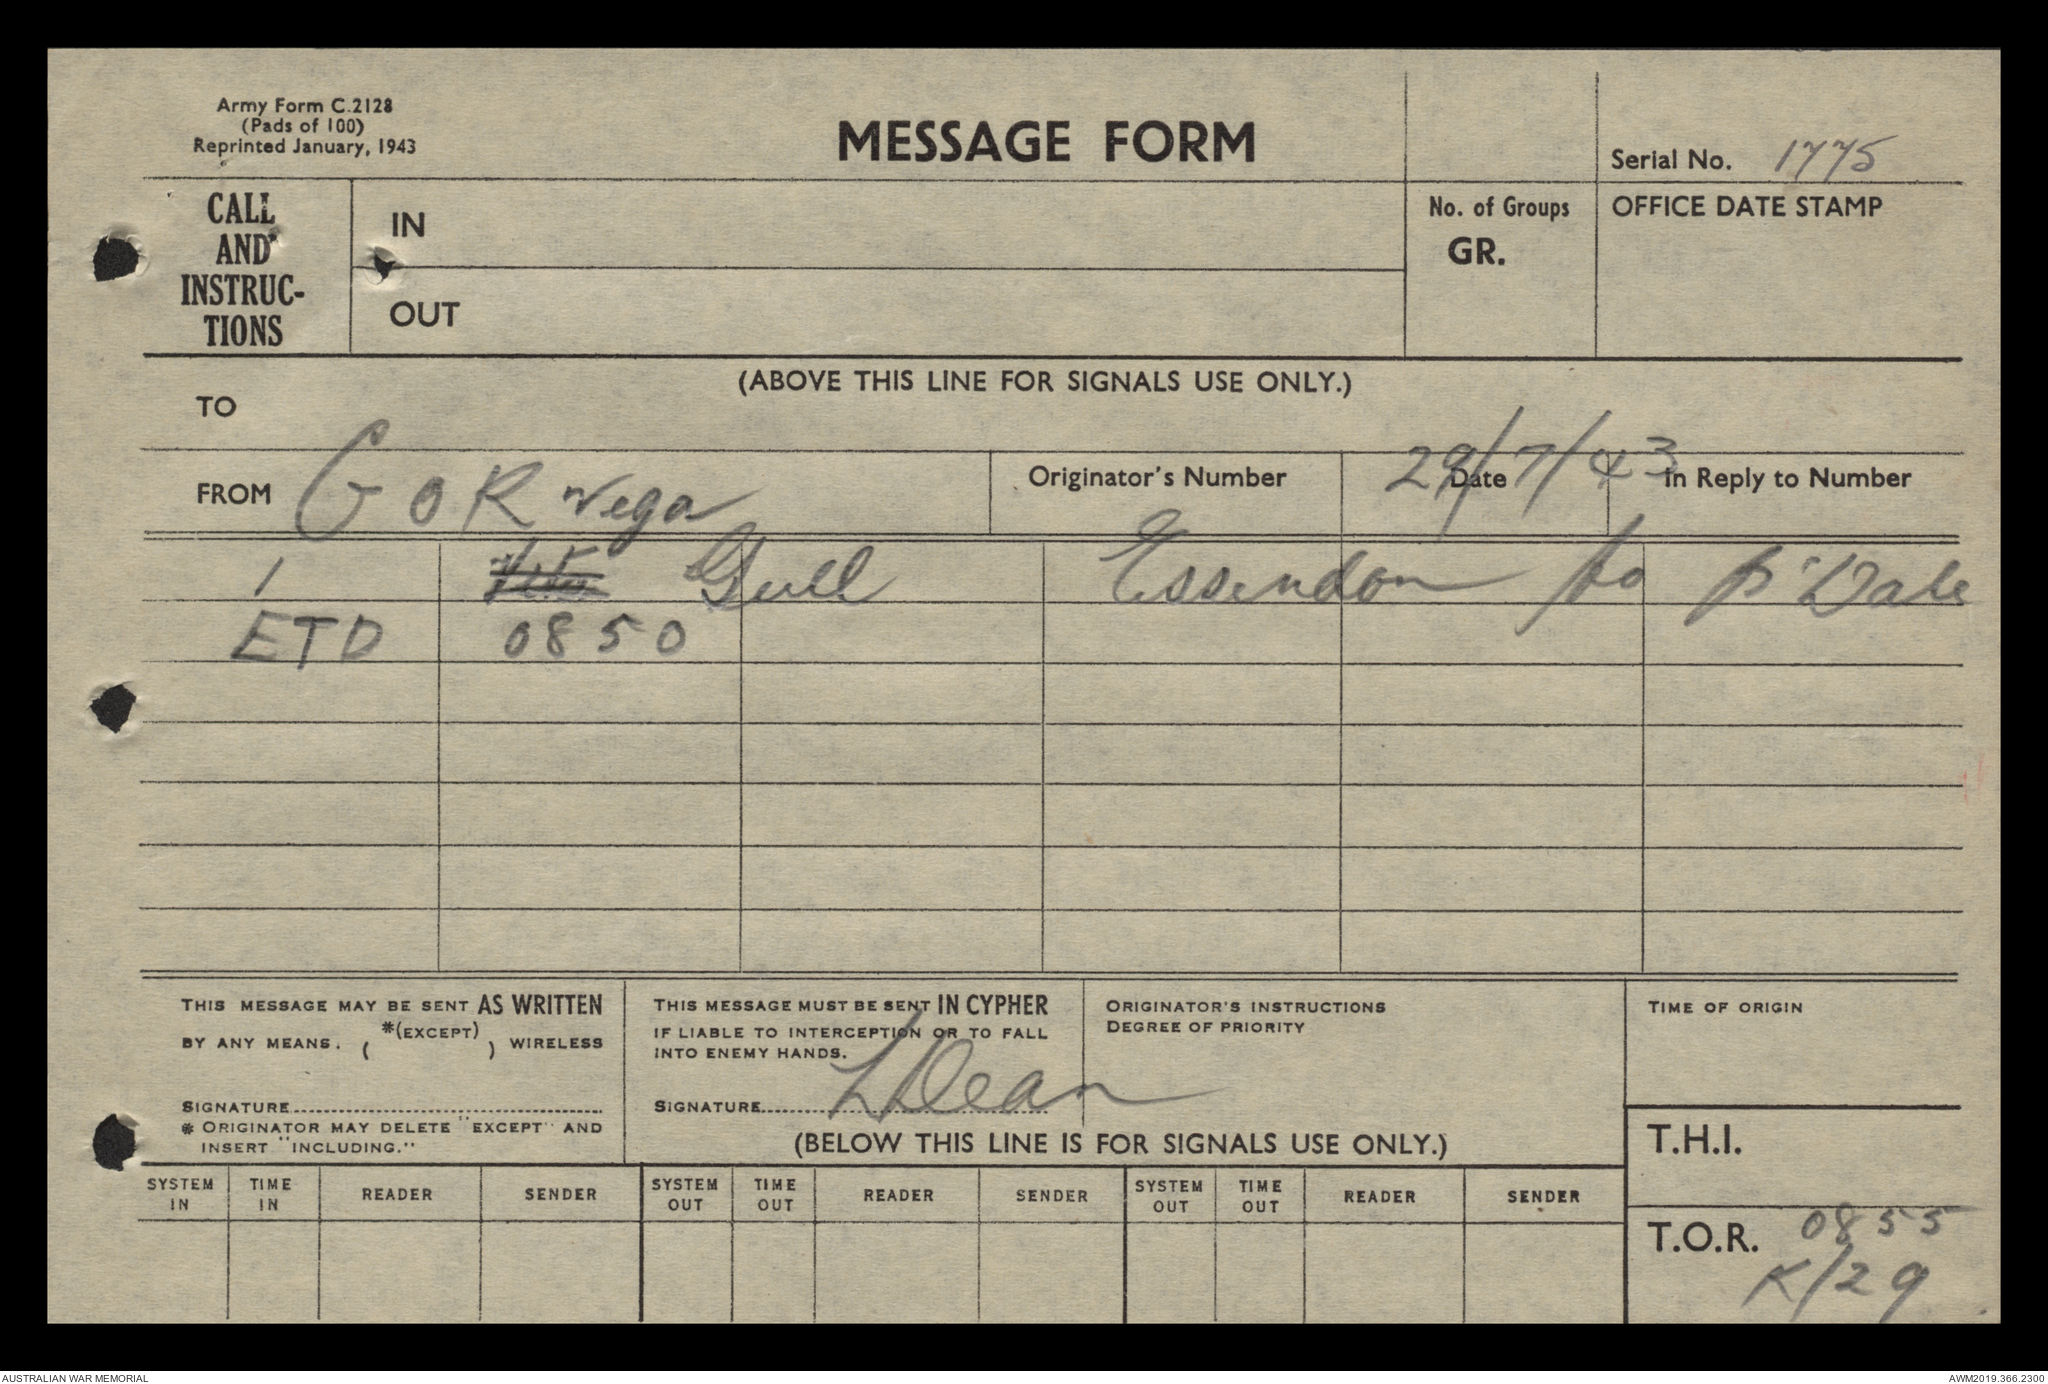 Army Form C.2128
(Pads of 100)
Reprinted January, 1943
MESSAGE FORM
Serial No. 1775
CALL
AND
INSTRUC-
TIONS
IN
OUT
No. of Groups
GR.
OFFICE DATE STAMP
(ABOVE THIS LINE FOR SIGNALS USE ONLY.)
TO
FROM G O R Vega
Originator's Number
Date 29/7/43
In Reply to Number
1 Gull Essendon to B'Dale
ETD 0850
THIS MESSAGE MAY BE SENT AS WRITTEN
BY ANY MEANS. ( *(EXCEPT) ) WIRELESS
SIGNATURE
* ORIGINATOR MAY DELETE "EXCEPT" AND
INSERT "INCLUDING."
THIS MESSAGE MUST BE SENT IN CYPHER
IF LIABLE TO INTERCEPTION OR TO FALL
INTO ENEMY HANDS.
SIGNATURE L Dean
ORIGINATOR'S INSTRUCTIONS
DEGREE OF PRIORITY
TIME OF ORIGIN
(BELOW THIS LINE IS FOR SIGNALS USE ONLY.)
T.H.I.
SYSTEM IN TIME IN READER SENDER SYSTEM OUT TIME OUT READER SENDER SYSTEM OUT TIME OUT READER SENDER
T.O.R. 0855
K/29
AUSTRALIAN WAR MEMORIAL
AWM2019.366.2300